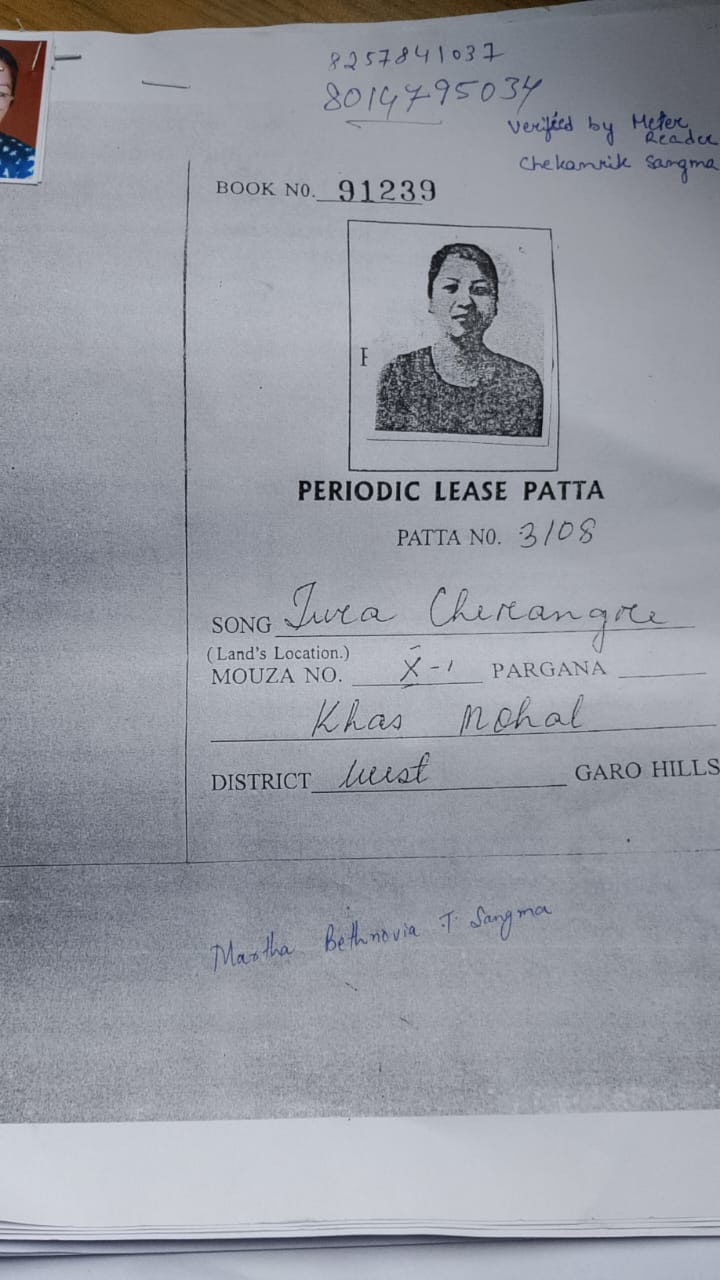 8257841037
8014795034
Verified by Meter
Reader
Chekamrik Sangma
BOOK NO. 91239
F
PERIODIC LEASE PATTA
PATTA NO. 3108
SONG Tura Chereangre
(Land's Location.)
MOUZA NO. X-1 PARGANA
Khas Mohal
DISTRICT West GARO HILLS
Martha Bethnovia T Sangma